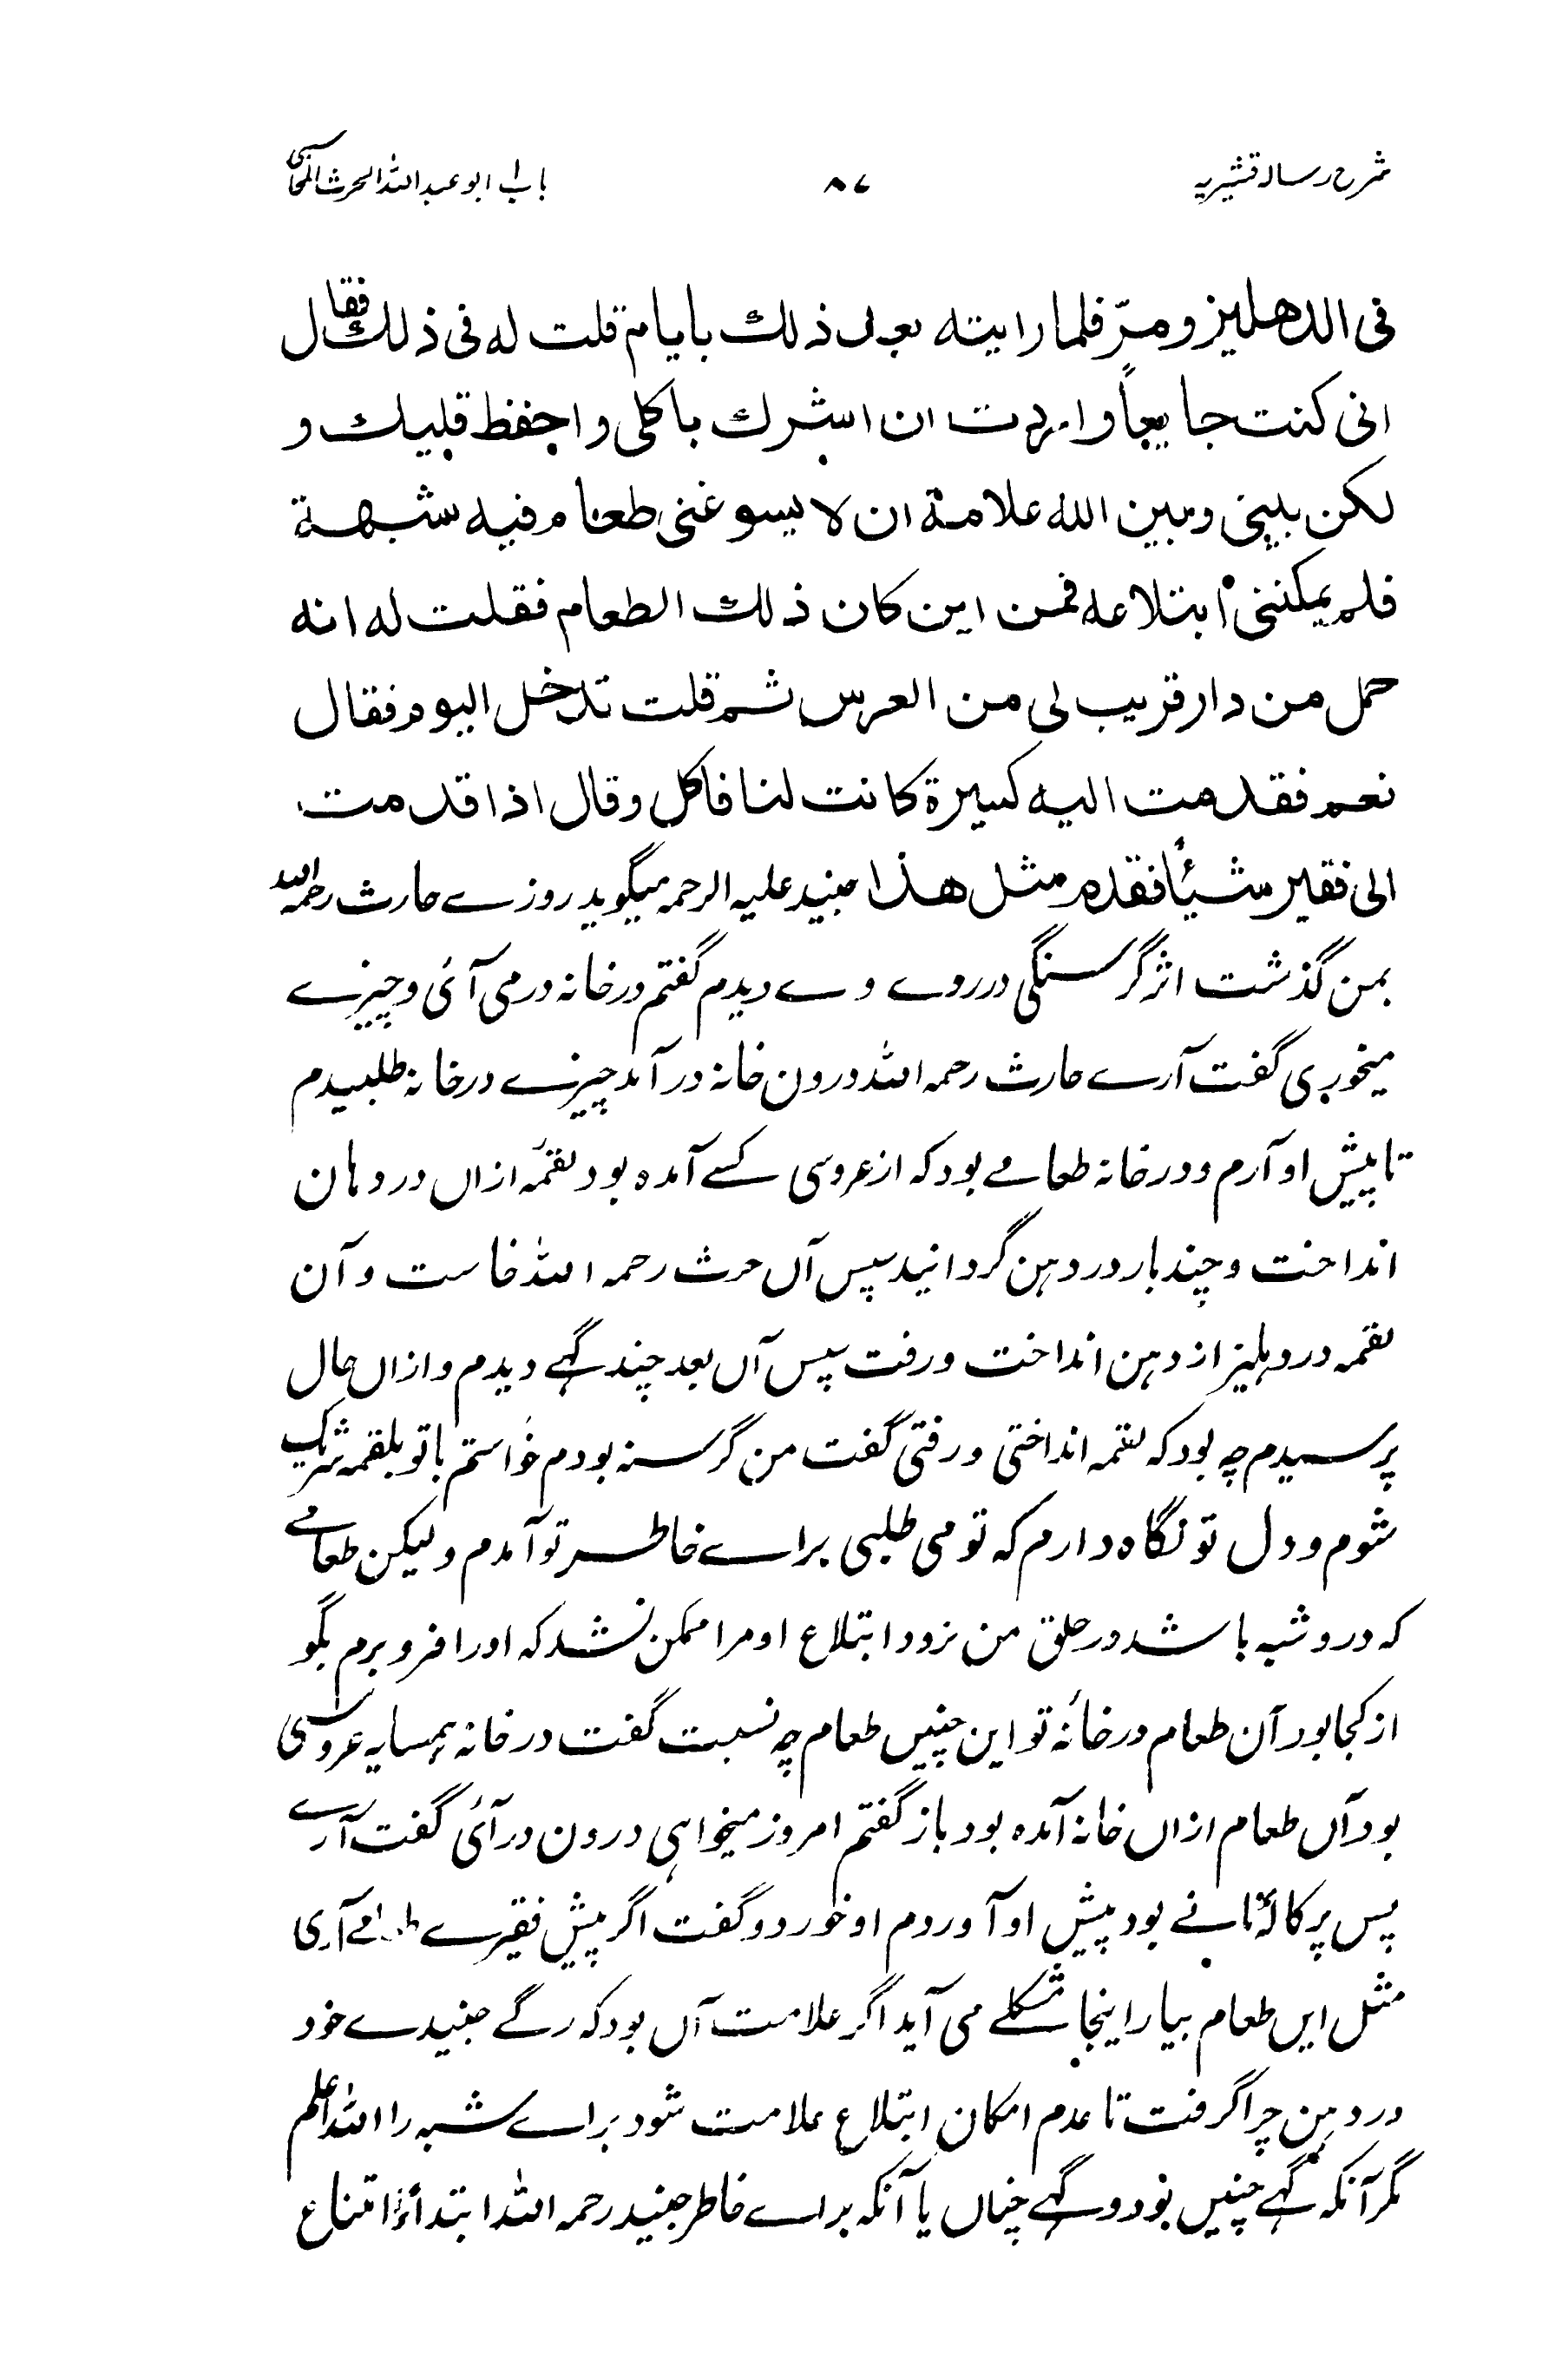 شرح رسالہ قشیریہ
۸۷
باب ابو عبداللہ الحرث المحاسبی
فی الدهلیز ومرّ فلما رایته بعد ذلك بایام قلت له فی ذلك فقال
انی كنت جایعاً واردت ان اسّرك باكلی واحفظ قلبك و
لكن بینی وبین الله علامة ان لا یسوغنی طعام فیه شبهة
فلم یمكننی ابتلاعه فمن این كان ذلك الطعام فقلت له انه
حمل من دار قریب لی من العرس ثم قلت تدخل الیوم فقال
نعم فقدمت الیه كسیرة كانت لنا فاكل وقال اذا قدمت
الی فقیر شیئاً فقدم مثل هذا جنید علیہ الرحمہ میگوید روزے حارث رحمہ اللہ
بمن گذشت اثر گرسنگی در روے وے دیدم گفتم در خانہ در می آئی و چیزے
میخوری گفت آرے حارث رحمہ اللہ درون خانہ در آمد چیزے در خانہ طلبیدم
تا پیش او آرم و در خانہ طعامے بود کہ از عروسی کسے آمدہ بود لقمۂ ازاں در دہان
انداخت و چند بار در دہن گردانید سپس آں حرث رحمہ اللہ خاست و آن
لقمہ در دہلیز از دہن انداخت و رفت سپس آں بعد چند گہے دیدم و ازاں حال
پرسیدم چہ بود کہ لقمہ انداختی و رفتی گفت من گرسنہ بودم خواستم با تو بلقمہ شریک
شوم و دل تو نگاہ دارم کہ تو می طلبی براے خاطر تو آمدم و لیکن طعامے
کہ درو شبہ باشد در حلق من نرود ابتلاع او مرا ممکن نشد کہ اورا فرو برم بگو
از کجا بود آن طعام در خانۂ تو این چنیں طعام چہ نسبت گفت در خانہ ہمسایہ عروسی
بود آں طعام ازاں خانہ آمدہ بود باز گفتم امروز میخواہی درون در آئی گفت آرے
پس پرکالۂ نانے بود پیش او آوردم او خورد و گفت اگر پیش فقیرے طعامے آری
مثل ایں طعام بیار اینجا مشکلے می آید اگر علامت آں بود کہ رگے جنبیدے خود
در دہن چرا گرفت تا عدم امکان ابتلاع علامت شود براے شبہ را اللہ اعلم
مگر آنکہ گہے چنیں بود و گہے چناں یا آنکہ براے خاطر جنید رحمہ اللہ ابتداءً امتناع